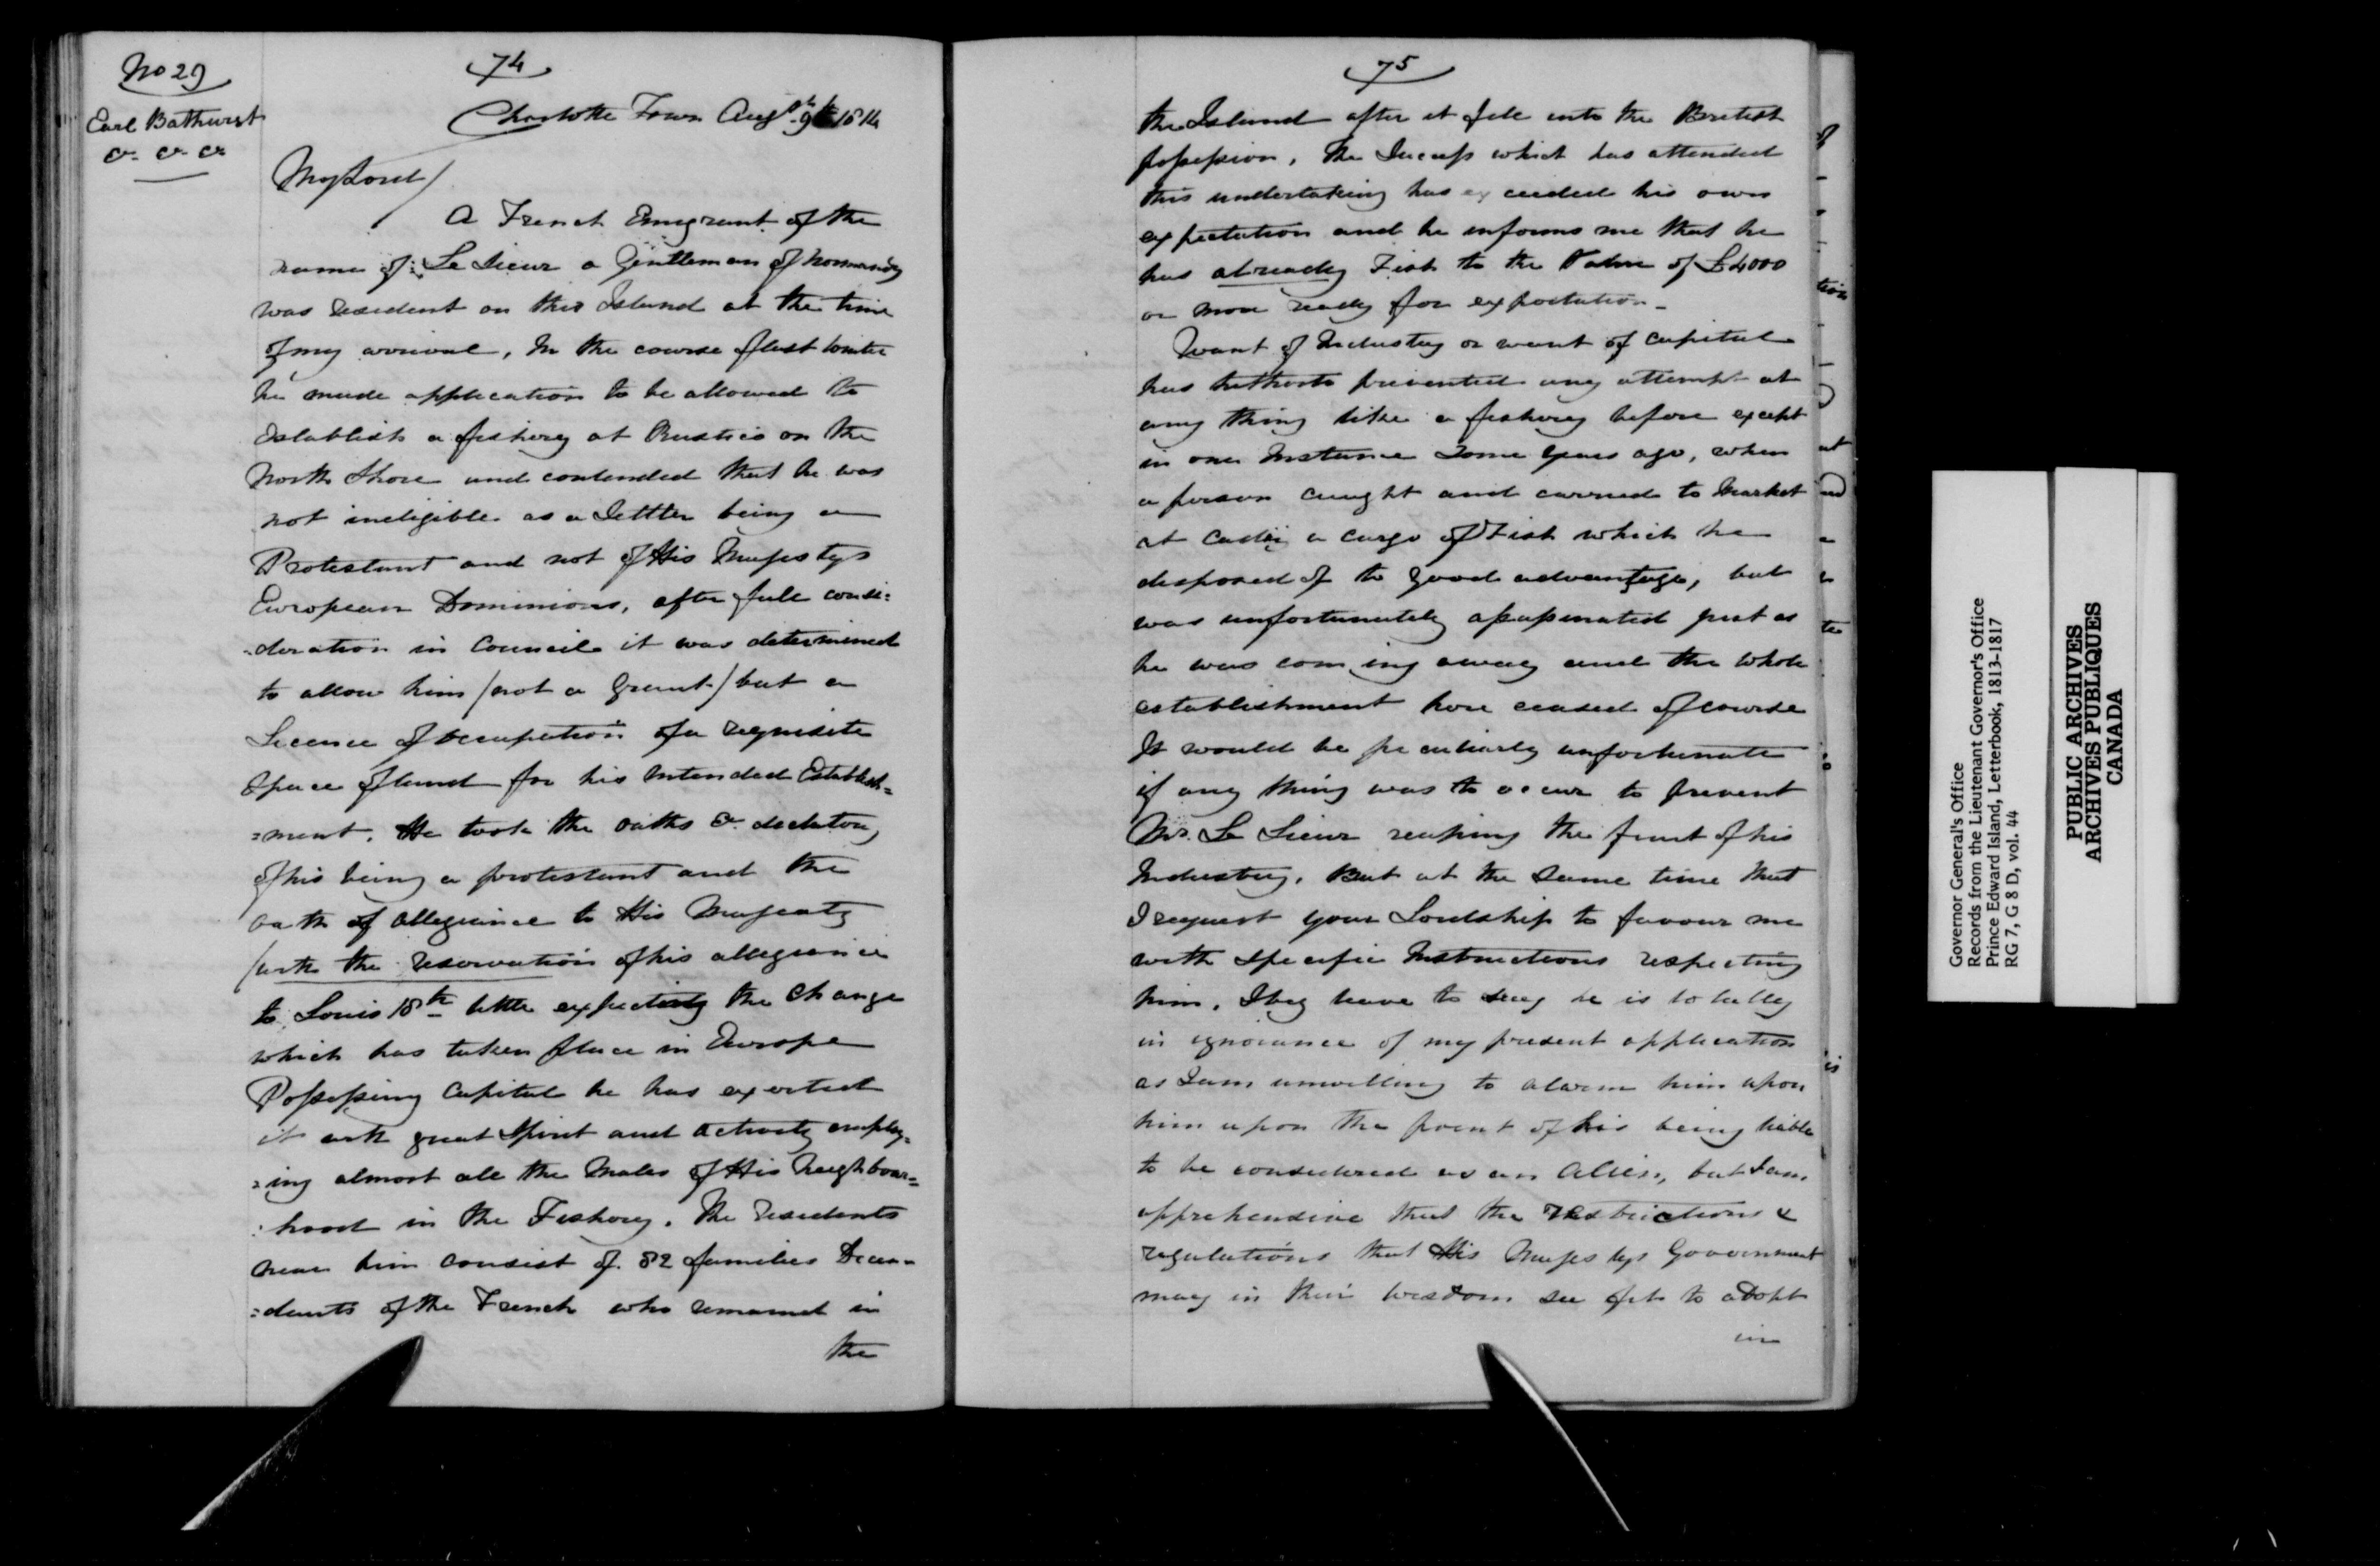 No 29
Earl Bathurst
&. &. &.
74
Charlotte Town Augst 9th 1814
My Lord/
A French Emigrant of the
name of Le Sieur a Gentleman of Normandy
was resident on this Island at the time
of my arrival, In the course of last Winter
he made application to be allowed to
establish a fishery at Rustico on the
North Shore and contended that he was
not ineligible as a Settler being a
Protestant and not of His Majestys
European Dominions, after full consi=
=deration in Council it was determined
to allow him /not a Grant/ but a
Licence of occupation of a requisite
Space of land for his intended Establish=
=ment. He took the oaths & declatory
of his being a protestant and the
oath of allegiance to His Majesty
/with the reservation of his allegiance
to Louis 18th little expecting the change
which has taken place in Europe
Possessing Capital he has exerted
it with great Spirit and activity employ=
=ing almost all the Males of His Neighbour=
=hood in the Fishery. The residents
near him consist of 82 families Decen=
=dants of the French who remained in
the
75
the Island after it fell into the British
possession, The Success which has attended
this undertaking has exceeded his own
expectation and he informs me that he
has already Fish to the Value of £4000
or more ready for exportation_
Want of Industry or want of capital
has hitherto prevented any attempt at
any thing like a fishery before except
in one Instance some years ago, when
a person caught and carried to Market
at Cadiz a cargo of Fish which he
disposed of to good advantage, but
was unfortunately assassinated just as
he was coming away and the whole
establishment here ceased of course
It would be peculiarly unfortunate
if any thing was to occur to prevent
Mr. Le Sieur reaping the fruit of his
Industry. But at the same time that
I request your Lordship to favour me
with specific Instructions respecting
him, I beg leave to say he is totally
in ignorance of my present application
as I am unwilling to alarm him upon
him upon the point of his being liable
to be considered as an Alien, but I am
apprehensive that the restrictions &
regulations that His Majestys Government
may in their wisdom see fit to adopt
in
Governor General's Office
Records from the Lieutenant Governor's Office
Prince Edward Island, Letterbook, 1813-1817
RG 7, G 8 D, vol. 44
PUBLIC ARCHIVES
ARCHIVES PUBLIQUES
CANADA